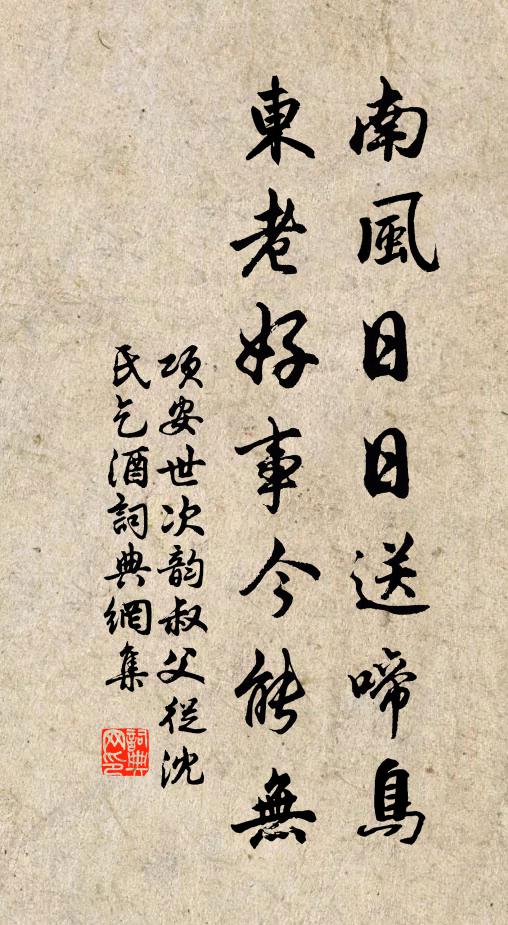 南風日日送啼鳥
東老好事今能無
項安世次韵叔父從沈
氏乞酒詞典網集
詞典網印